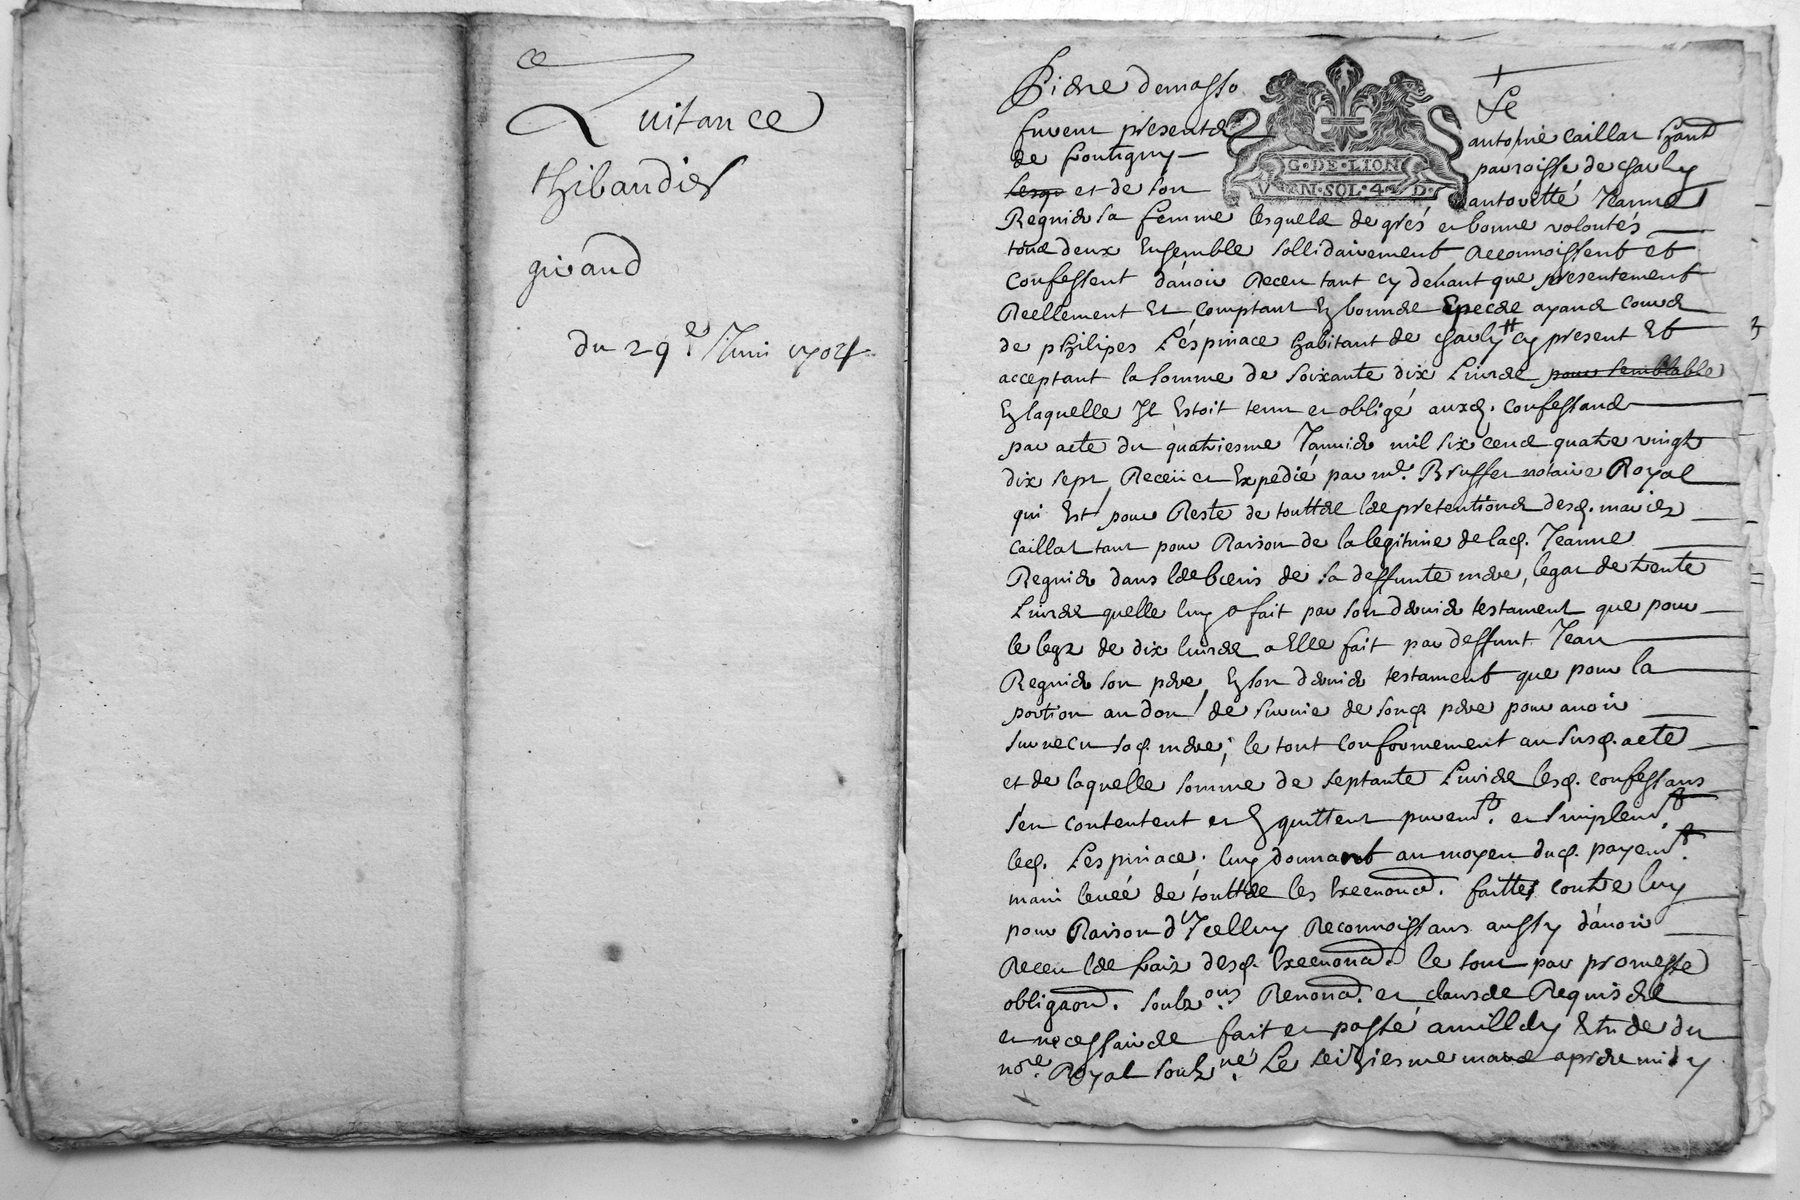 ce
Quitance
thibaudier
giraud
du 29e Juin 1704
Pierre demasso
Le
furent presents antoine caillat habt
de Frontigny paroisse de charly
G·DE·LION
lesq et de son autoritté Jeanne
V N·SOL·4·D·
Regnier sa femme lesquels de grés et bonne volontés
tous deux Ensemble sollidairement Reconnoissent et
Confessent d'avoir Receu tant cy devant que presentement
Reellement Et Comptant En bonnes Especes ayans cours
de philipes L'éspinace habitant de charly cy present Et
acceptant la somme de soixante dix Livres pour semblable
En laquelle Il Estoit tenu et obligé auxd. confessans
par acte du quatriesme Janvier mil six cens quatre vingt
dix sept, Receü et Expedié par me. Bruffer notaire Royal
qui Est pour Reste de touttes les pretentions desd. mariez
Caillat tant pour Raison de la legitime de lad. Jeanne
Regnier dans les biens de sa deffunte mere, legat de trente
Livres quelle luy a fait par son dernier testament que pour
le legz de dix livres a Elle fait par deffunt Jean
Regnier son pere, En son dernier testament que pour la
portion au don de survie de sond. pere pour avoir
survecu sad. mere, le tout Conformement au susd. acte
et de laquelle somme de septante Livres lesd. confessans
s'en contentent et En quittent puremt. et simplemt.
led. Lespinace. luy donnant au moyen dud. payemt.
main leveé de touttes les Execuond. faittes contre luy
pour Raison d'Icelluy Reconnoissans aussy d'avoir
Receu les fraiz desd. Execuond. le tout par promesse
obligaond. soubz ons Renond. et clauses Requises
et necessaires fait et passé a millery Etude du
nore. Royal soubz né. Le seiziesme mars apres midy